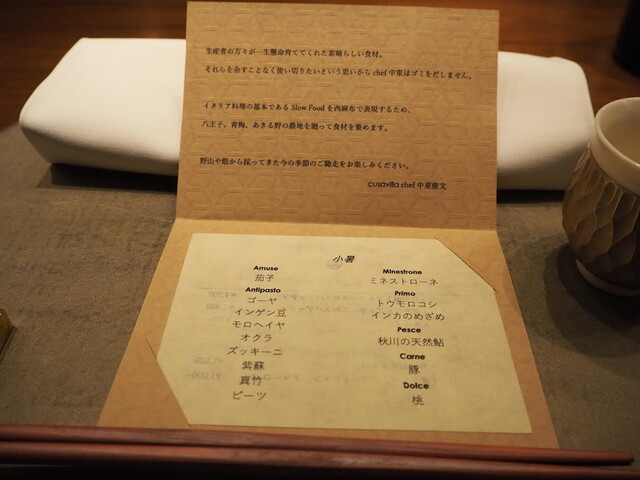 生産者の方々が一生懸命育ててくれた素晴らしい食材。
それらを余すことなく使い切りたいという思いからchef中東はゴミをだしません。
イタリア料理の基本であるSlow Foodを西麻布で表現するため、
八王子、青梅、あきる野の農地を廻って食材を集めます。
野山や畑から採ってきた今の季節のご馳走をお楽しみください。
cusavilla chef 中東俊文
小暑
Amuse
茄子
Antipasto
ゴーヤ
インゲン豆
モロヘイヤ
オクラ
ズッキーニ
紫蘇
真竹
ビーツ
Minestrone
ミネストローネ
Primo
トウモロコシ
インカのめざめ
Pesce
秋川の天然鮎
Carne
豚
Dolce
桃